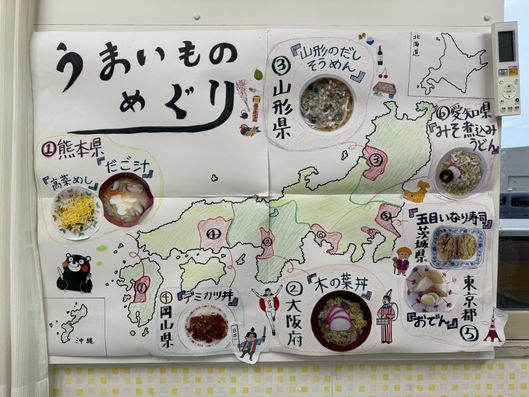 うまいもの
めぐり
①熊本県
『高菜めし』
『だご汁』
③
山形県
『山形のだし
そうめん』
北海道
⑥愛知県
『みそ煮込み
うどん』
五目いなり寿司
茨城県
東京都
⑤
『おでん』
②
大阪府
『木の葉丼』
④
岡山県
『デミカツ丼』
沖縄
①
④
②
⑥
③
⑤